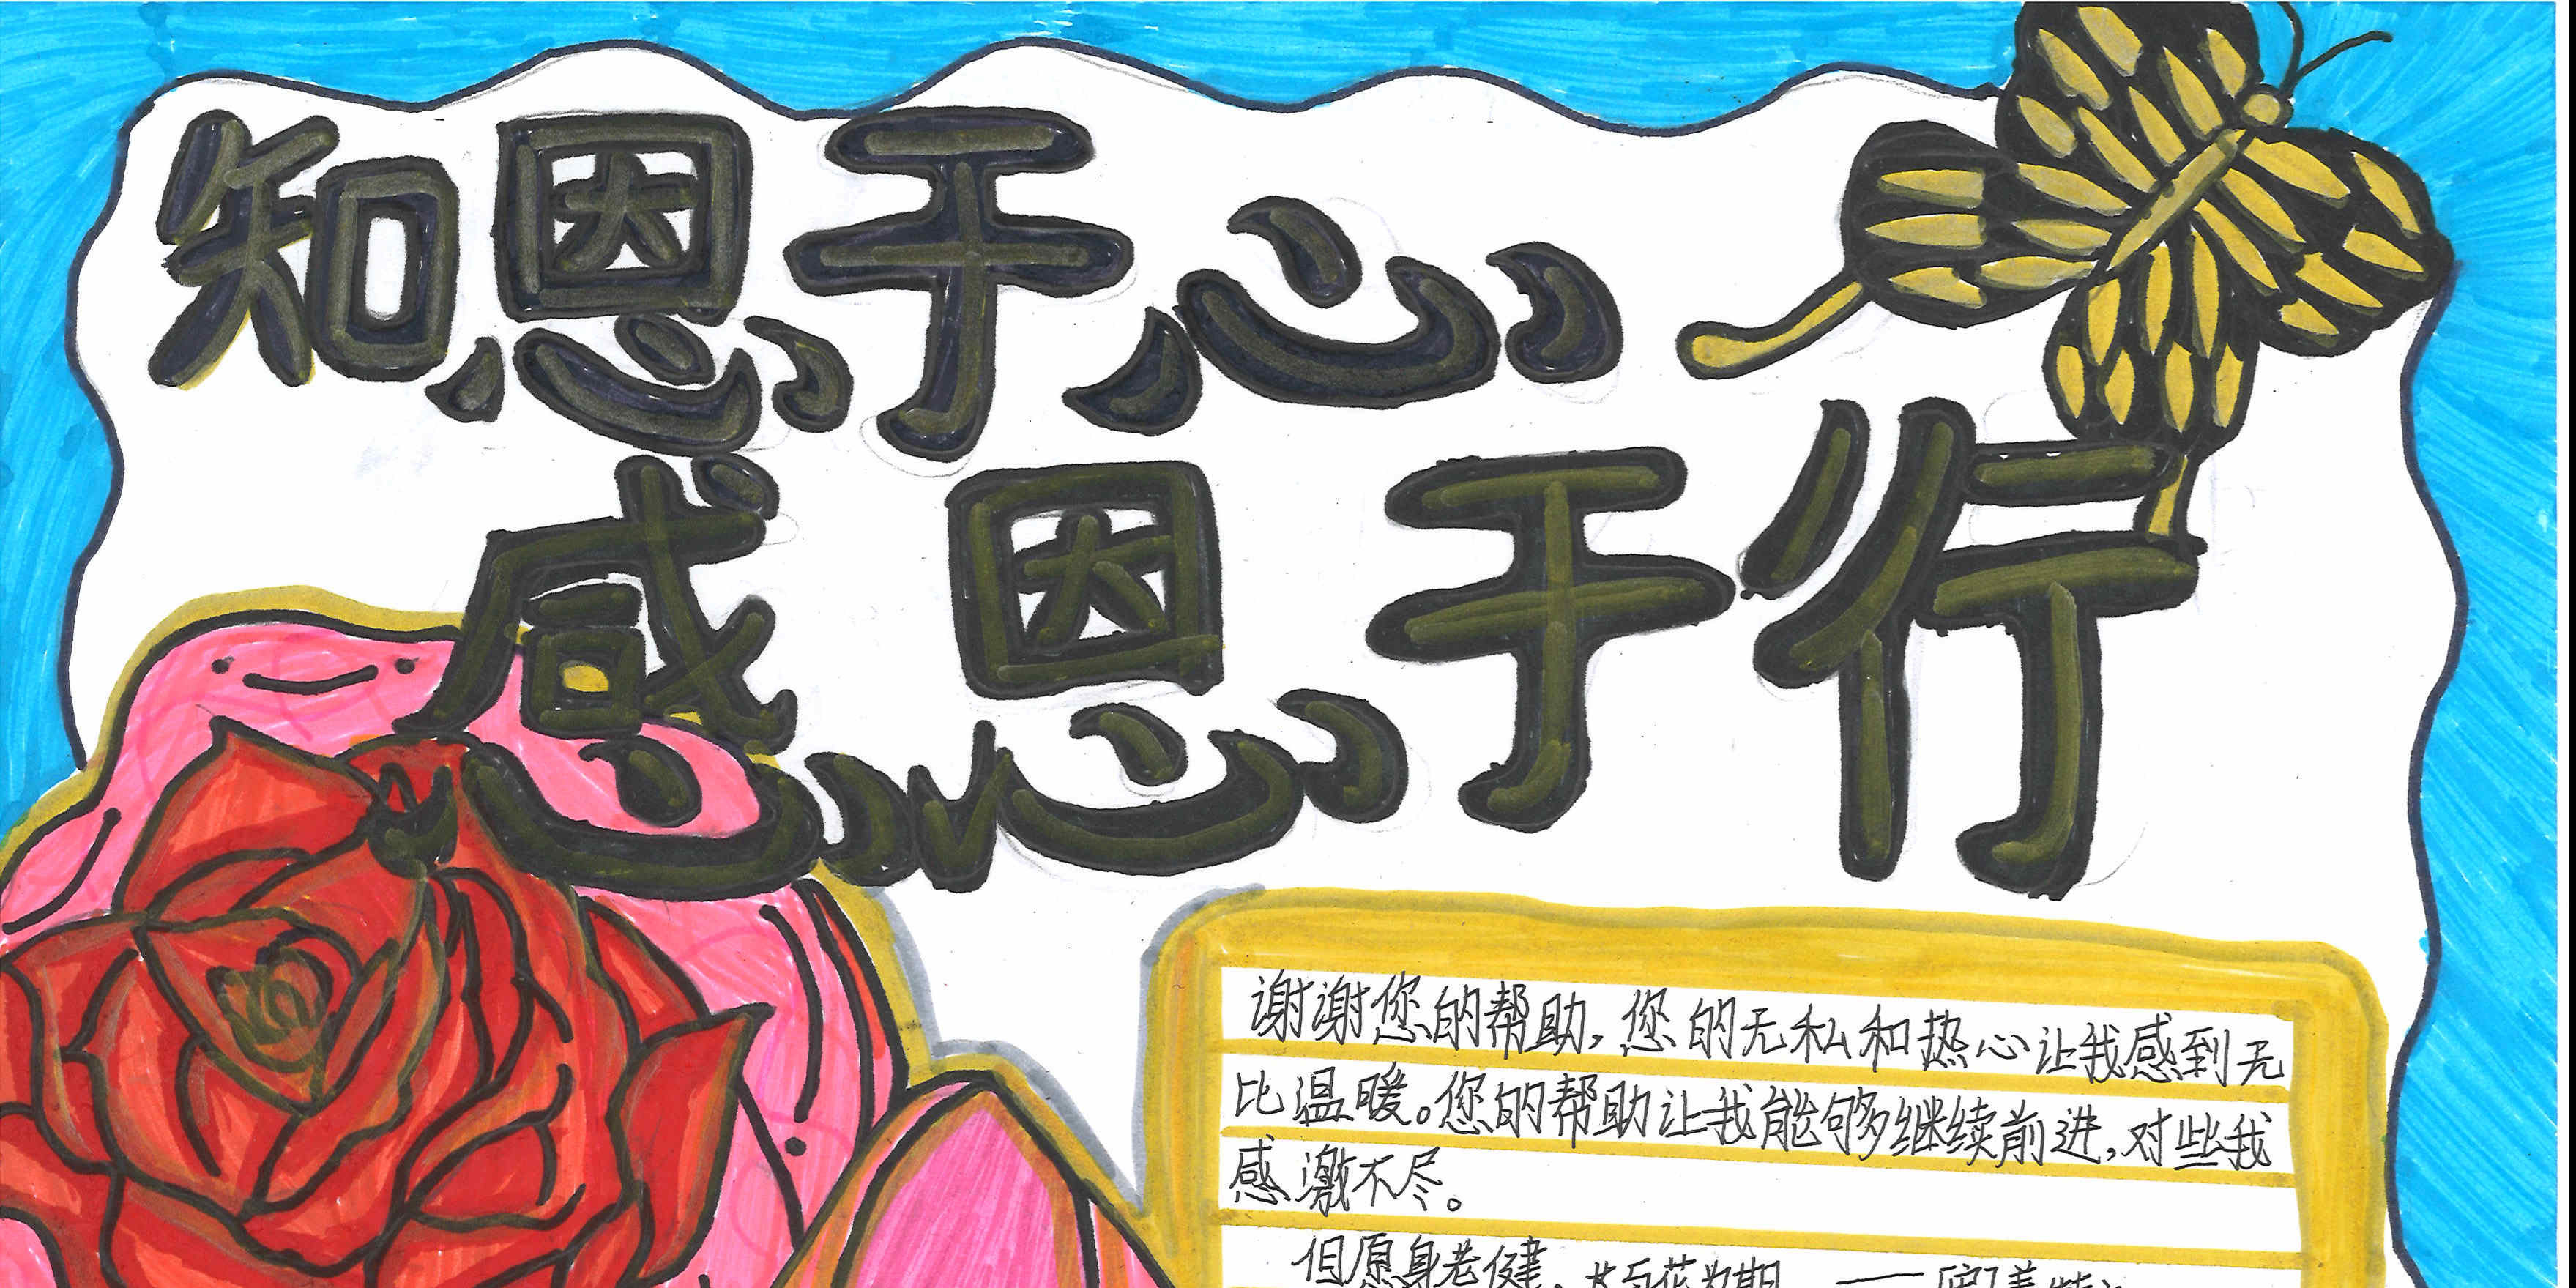 知恩于心
感恩于行
谢谢您的帮助，您的无私和热心让我感到无
比温暖。您的帮助让我能够继续前进，对些我
感激不尽。
但愿身老健，